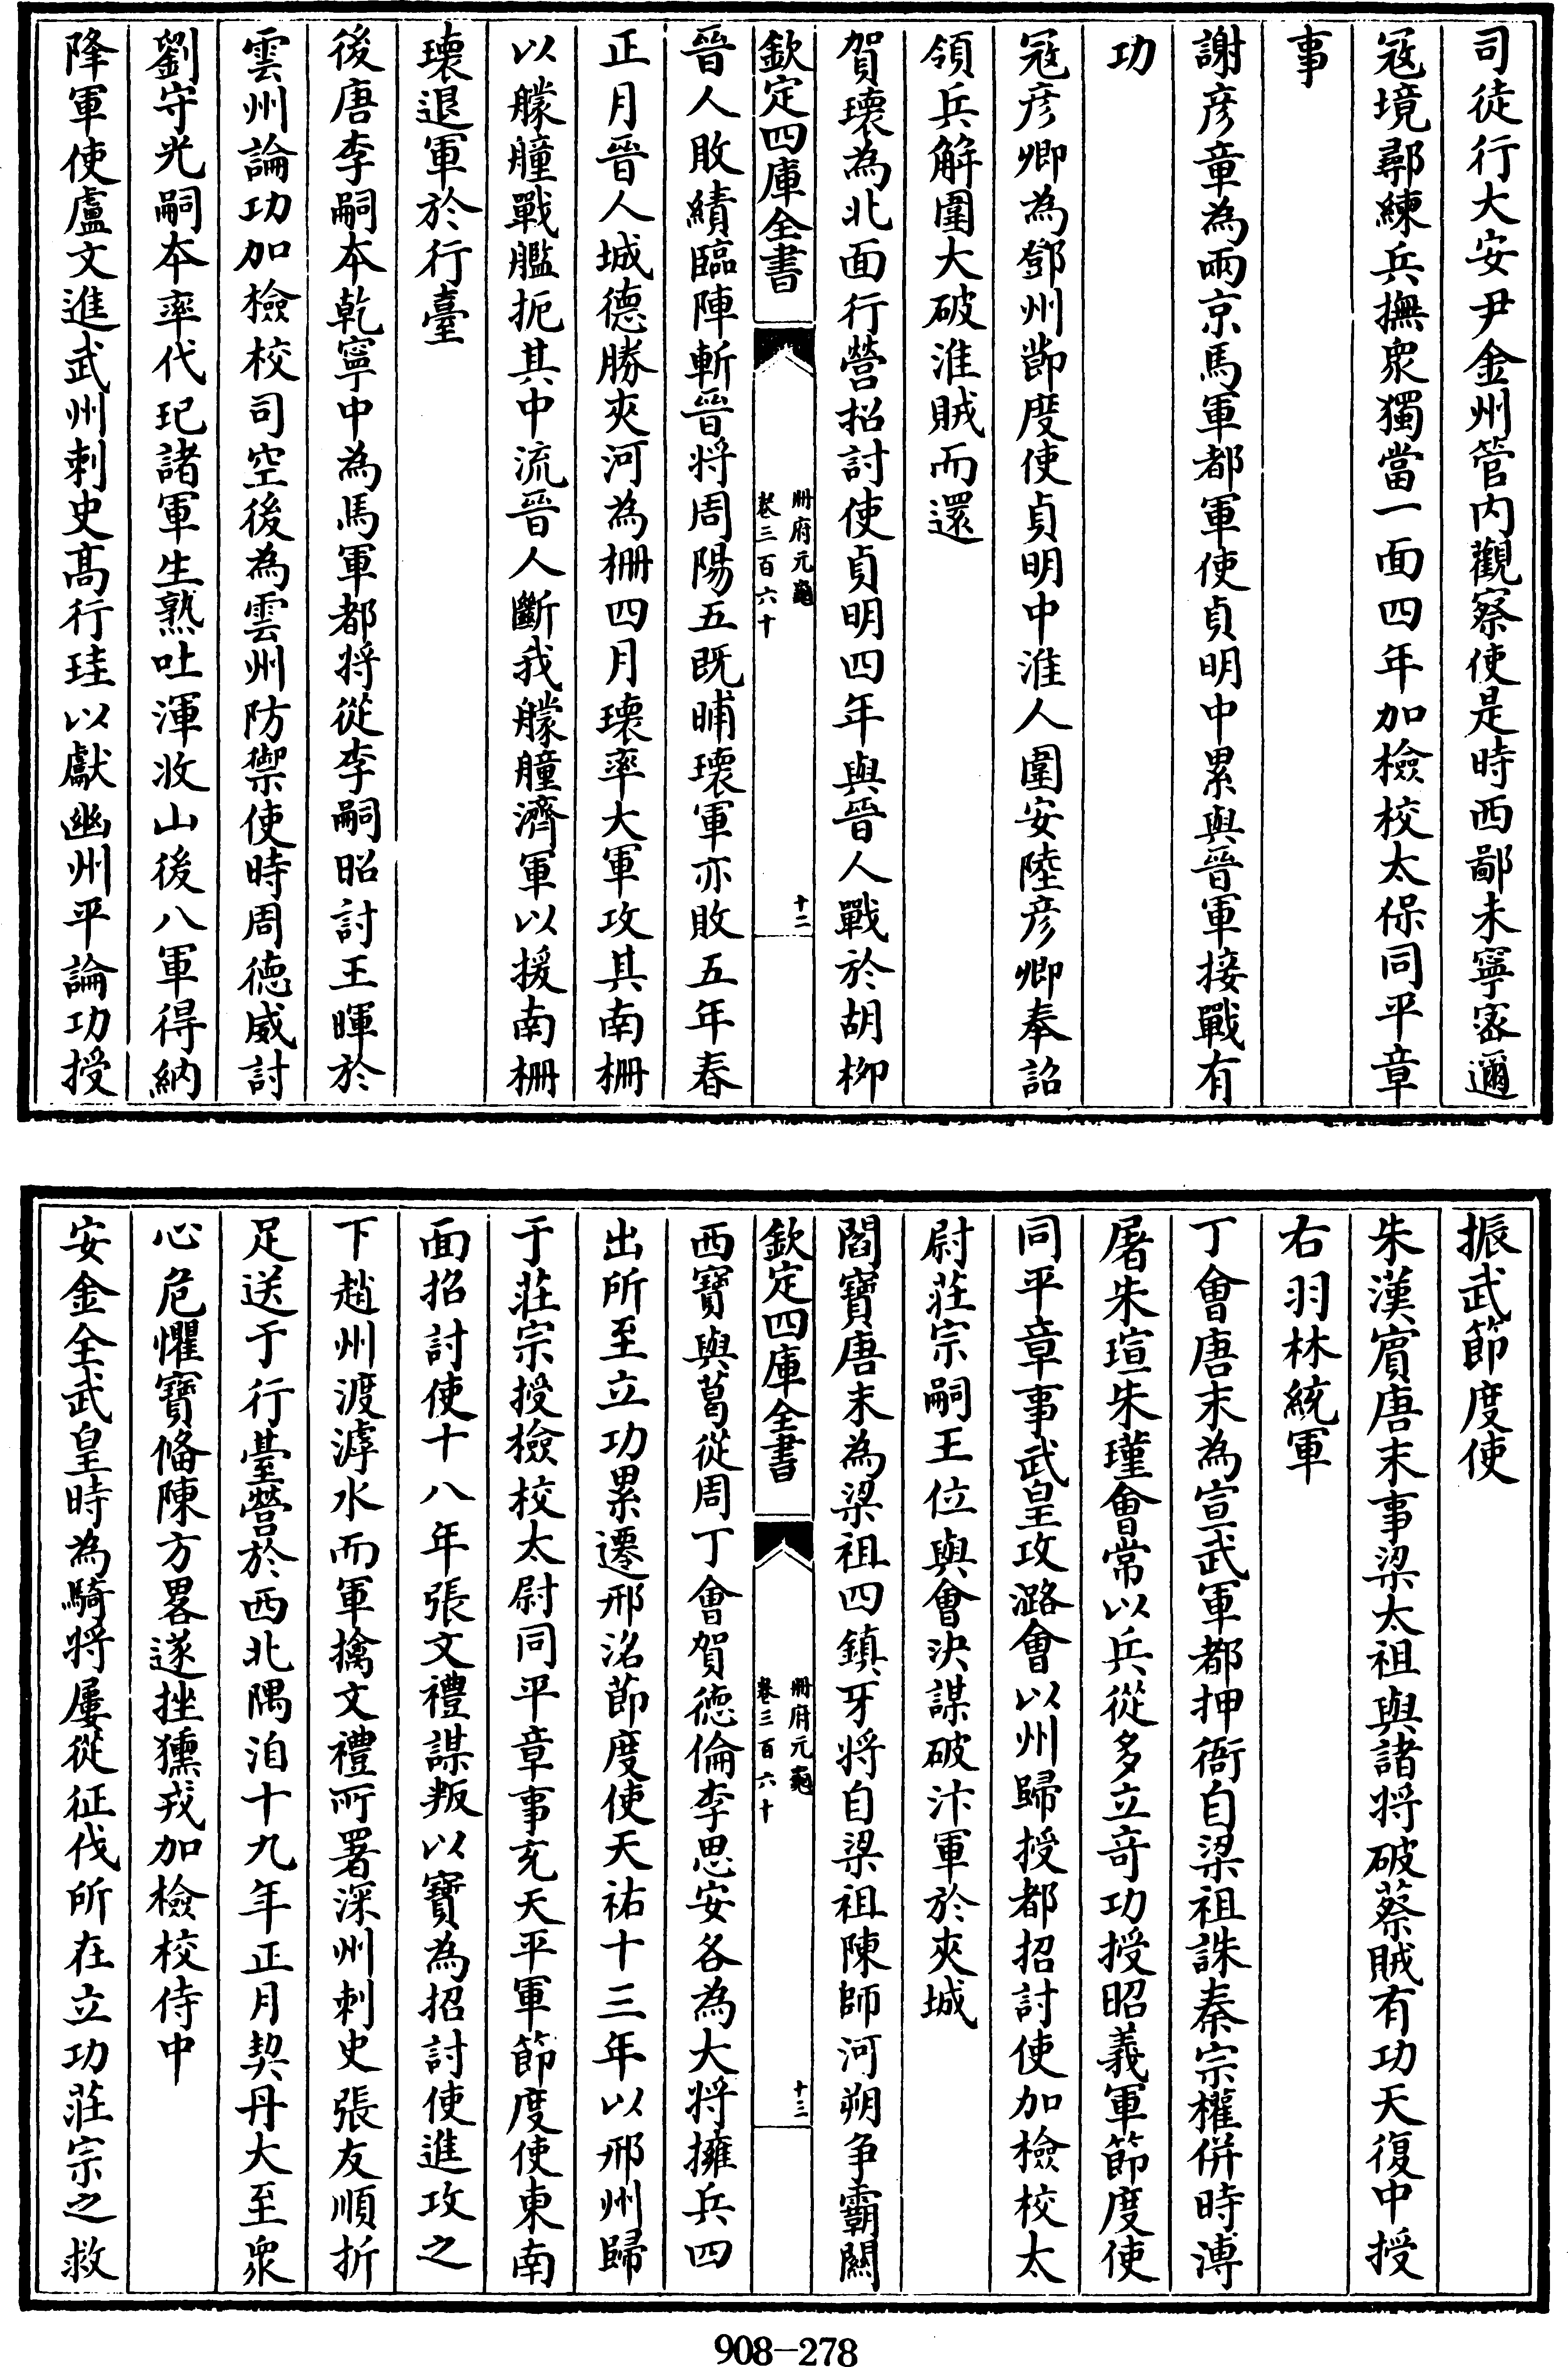 司徒行大安尹金州管內觀察使是時西鄙未寧密邇
冦境鄩練兵撫衆獨當一面四年加檢校太保同平章
事
謝彦章為兩京馬軍都軍使貞明中累與晉軍接戰有
功
冦彦卿為鄧州節度使貞明中淮人圍安陸彦卿奉詔
領兵解圍大破淮賊而還
賀瓌為北面行營招討使貞明四年與晉人戰於胡柳
欽定四庫全書
冊府元龜
卷三百六十
十二
晉人敗績臨陣斬晉將周陽五既晡瓌軍亦敗五年春
正月晉人城德勝夾河為柵四月瓌率大軍攻其南柵
以艨艟戰艦扼其中流晉人斷我艨艟濟軍以援南柵
瓌退軍於行臺
後唐李嗣本乾寧中為馬軍都將從李嗣昭討王暉於
雲州論功加檢校司空後為雲州防禦使時周德威討
劉守光嗣本率代北諸軍生熟吐渾收山後八軍得納
降軍使盧文進武州刺史髙行珪以獻幽州平論功授
振武節度使
朱漢賓唐末事梁太祖與諸將破蔡賊有功天復中授
右羽林統軍
丁會唐末為宣武軍都押衙自梁祖誅秦宗權併時溥
屠朱瑄朱瑾會常以兵從多立竒功授昭義軍節度使
同平章事武皇攻潞會以州歸授都招討使加檢校太
尉莊宗嗣王位與會決謀破汴軍於夾城
閻寶唐末為梁祖四鎮牙將自梁祖陳師河朔争霸關
欽定四庫全書
冊府元龜
卷三百六十
十三
西寶與葛從周丁會賀德倫李思安各為大將擁兵四
出所至立功累遷邢洺節度使天祐十三年以邢州歸
于莊宗授檢校太尉同平章事充天平軍節度使東南
面招討使十八年張文禮謀叛以寶為招討使進攻之
下趙州渡滹水而軍擒文禮所署深州刺史張友順折
足送于行臺營於西北隅洎十九年正月契丹大至衆
心危懼寶備陳方畧遂挫獯戎加檢校侍中
安金全武皇時為騎將屢從征伐所在立功莊宗之救
908-278